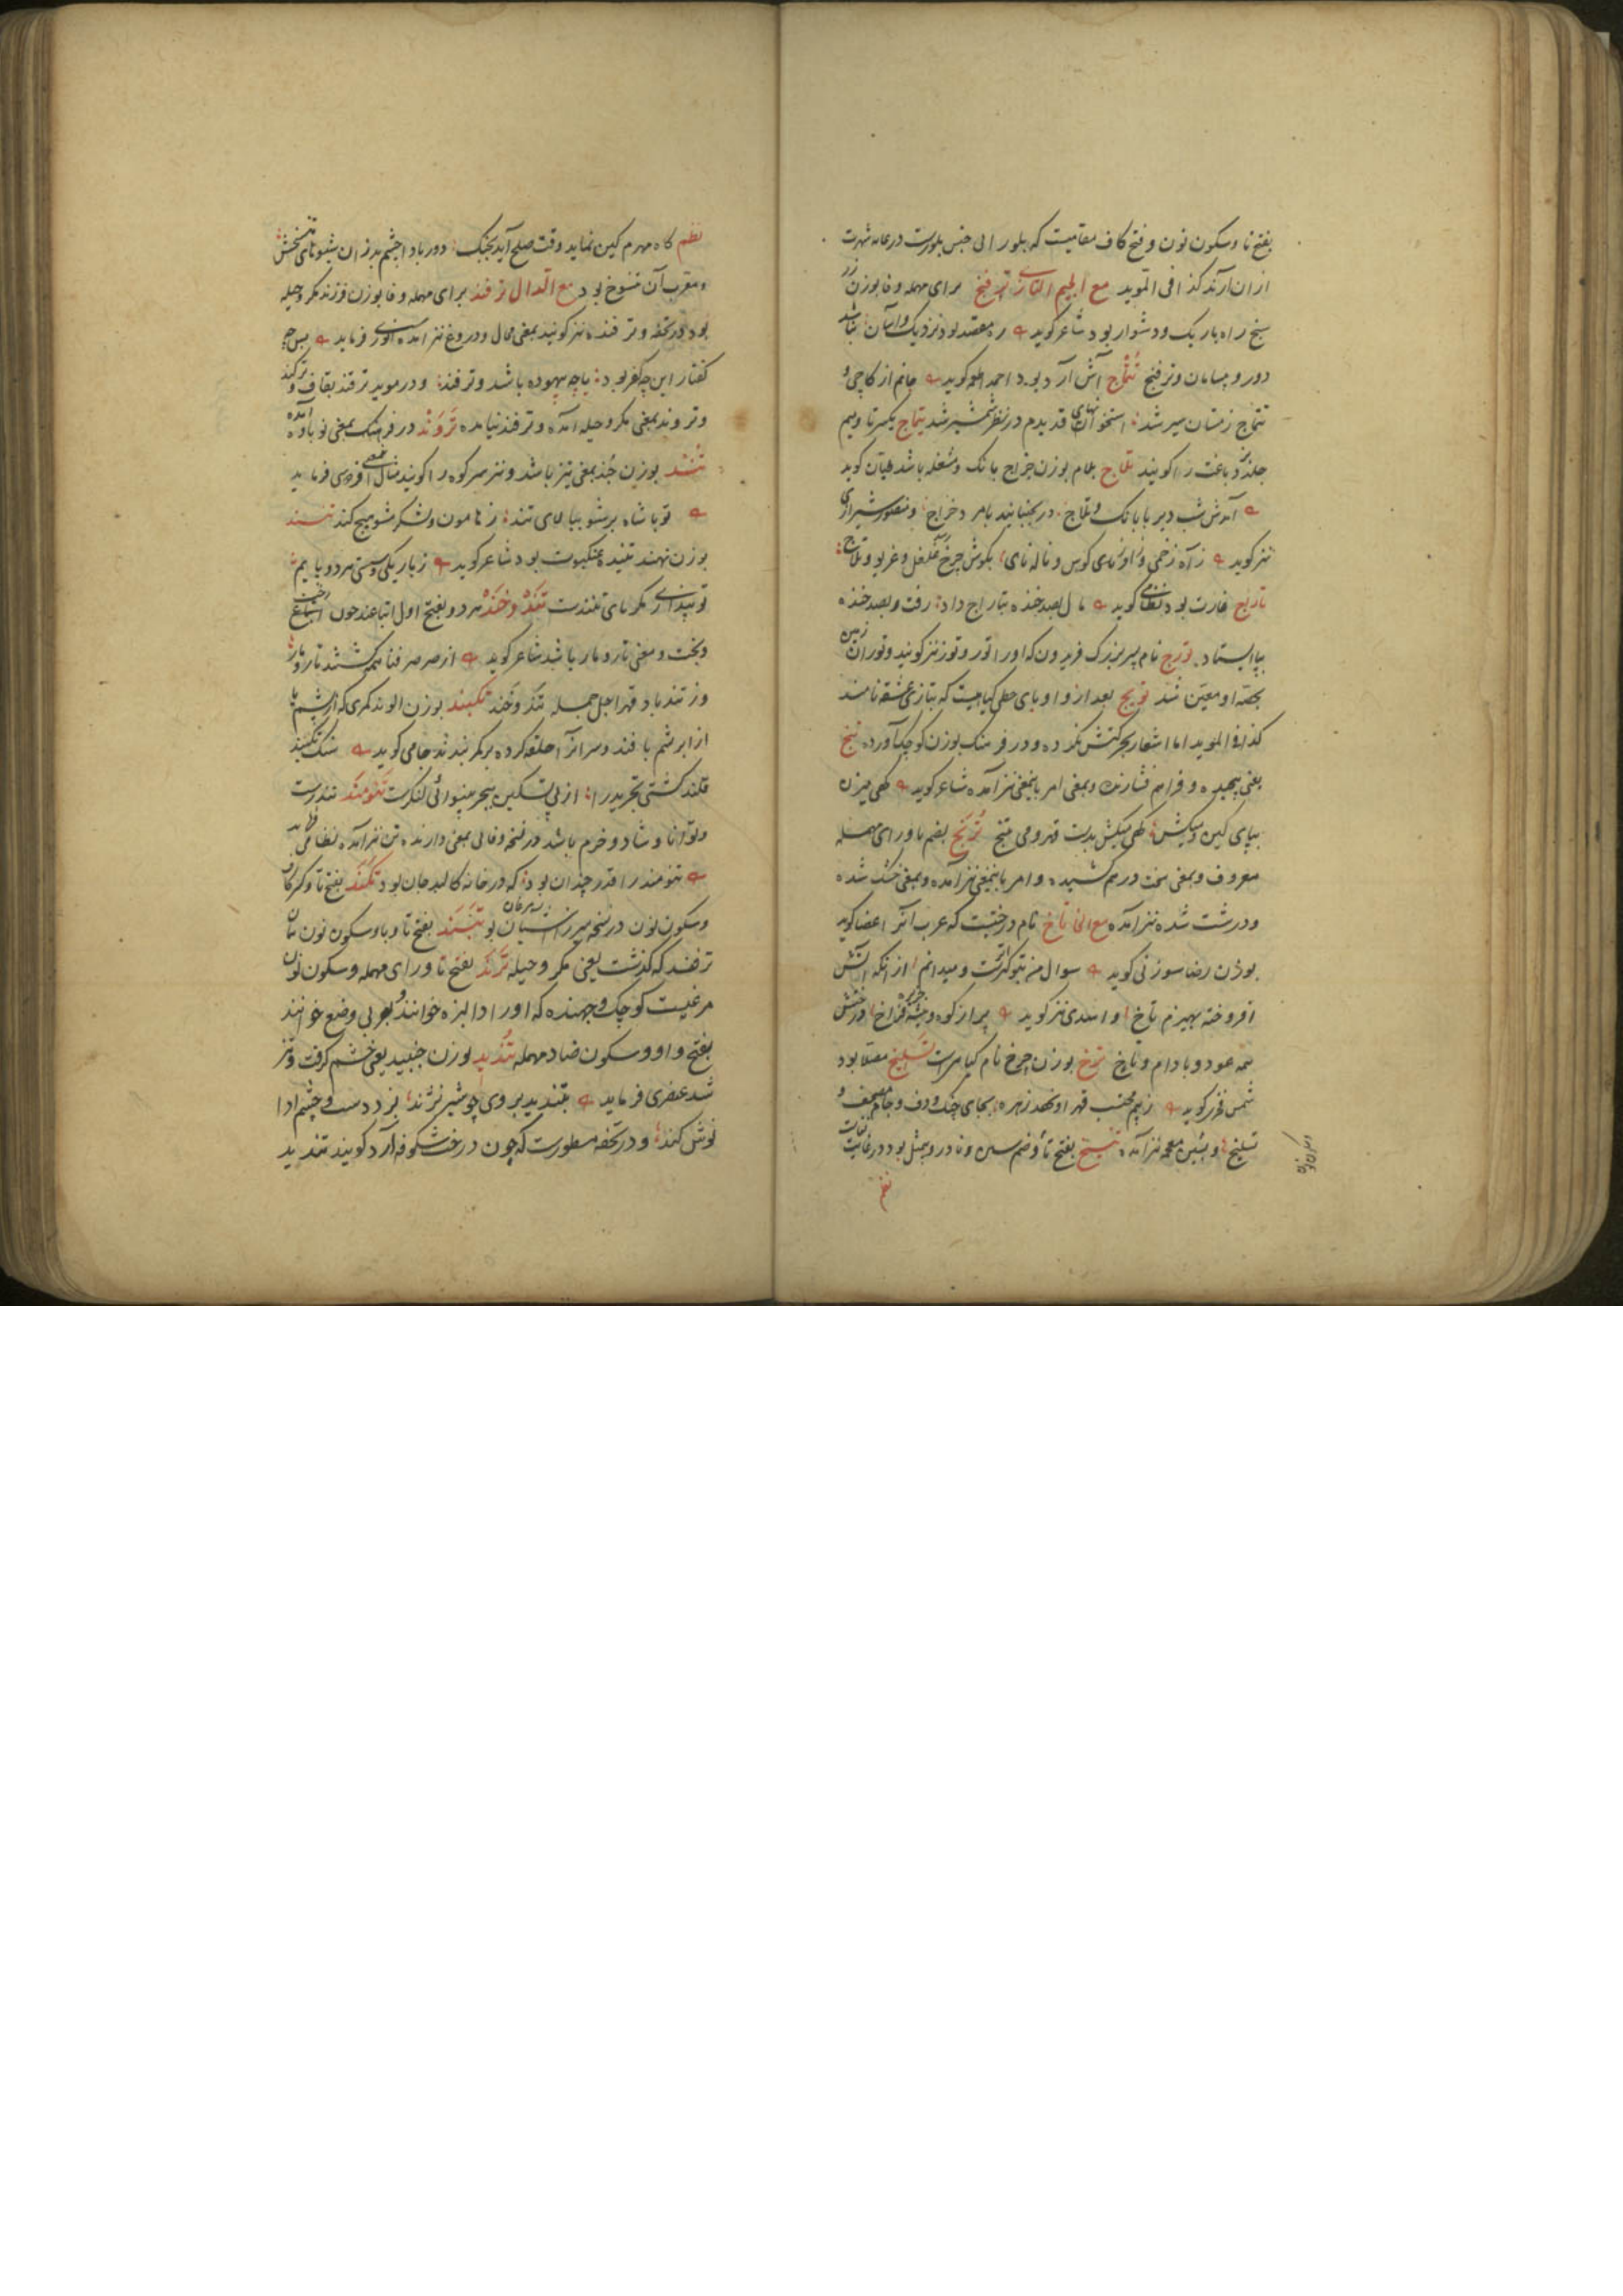 بفتح تا وسکون نون و فتح کاف مقامیست که بلور الی جنس بلورست در غایه شهرت
از ان آرند کذا فی الموید مع الجیم التازی ترفنج برای مهمله و فا بوزن
سنج راه باریک و دشوار بود شاعر کوید ره معقد بود نزدیک و آسان نباشد
دور و بیسامان و ترفنج تتماج آش آرد بود احمد اطعمه کوید جانم از کاچی و
تتماج زمستان سیر شد استخوانهای قدیدم در نظر شمشیر شد تیماج بکسر تا و میم
جلد دباغت را کویند تلاج بلام بوزن خراج بانک و مشغله باشد طیان کوید
آمدش شب دیر با بانک و تلاج در بجنبانید بامر د خراج و منصور شیرازی
نیز کوید ز آه زخمی و آوای کوس و ناله نای بکوش چرخ رسد غلغل و غریو و تلاج
تاراج غارت بود نظامی کوید مال بصد خنده بتاراج داد رفت و بصد خنده
بپا ایستاد تورج نام پسر بزرک فریدون که اورا تور و توز نیز کویند و توران زمین
بحصه او معین شد تویج بعد از واو یای حطی کیاهیست که بتازی عشقه نامند
کذا فی الموید اما اشعار بحرکتش نکرده و در فرهنک بوزن کوچک آورده تنج
یعنی پیچیده و فراهم فشارنده و بمعنی امر باینمعنی نیز آمده شاعر کوید کهی میزن
بپای کین و میکش کهی میکش بدست قهر و می تنج ترنج بضم تا و رای مهمله
معروف و بمعنی سخت درهم کشیده و امر باینمعنی نیز آمده و بمعنی خشک شده
و درشت شده نیز آمده مع الخا تاخ نام درختیست که عرب آنرا اعضا کوید
بوزن رضا سوزنی کوید سوال من بتو کرانست و میدانم از انکه آتش
افروخته بهیزم تاخ و اسدی نیز کوید پر از کوه و بیشه جزیره فراخ درختش
همه عود و بادام و تاخ ترخ بوزن چرخ نام کیاهیست تسلیخ مصلا بود
شمس فخر کوید ز بیم محتسب قهر او نهد زهره بجای چنک و دف و جام مصحف و
تسلیخ و بشین معجمه نیز آمده تنسخ بفتح تا و ضم سین و نادر و بیمثل بود در غایت نفاست
نظم
نظم کاه مهرم کین نماید وقت صلح آید بجنک دور بادا چشم بد زان شیوهای تنسخش
و معرب آن تنسوخ بود مع الدال ترفند برای مهمله و فا بوزن فرزند مکر و حیله
بود در تحفه و ترفنده نیز کویند بمعنی محال و دروغ نیز آمده انوری فرماید
کفتار این چه کفر بود یا چه بیهوده باشد و ترفند و در موید ترقند بقاف و ترکند
و تروند بمعنی مکر و حیله آمده و ترفند نیامده تروند در فرهنک بمعنی نوباوه آمده
تند بوزن جند بمعنی تیز باشد و نیز سر کوه را کویند مثال معنی فردوسی فرماید
تو با شاه برشو ببالای تند ز هامون و لشکر مشو هیچ کند تنند
بوزن نهند تنیده عنکبوت بود شاعر کوید ز باریکی و سستی هر دو پایم
تو پنداری مکر پای تنندست تند و خند هر دو بفتح اول اتباعند چون رخت
و پخت و معنی تار و مار باشد شاعر کوید از صرصر فنا همه کشتند تار و مار
وز تندباد قهر اجل جمله تند و خند تکبند بوزن الوند کمری که از پشم یا
از ابریشم بافند و سر آنرا حلقه کرده بر کمر بندند جامی کوید سنک تکبند
قلندر کشتی تجرید را از پی تسکین ببحر بینوائی لنکرست تنومند تندرست
و توانا و شاد و خرم باشد در نسخه وفائی بمعنی دارنده تن نیز آمده نظامی فرماید
تنومند را قدر چندان بود که در خانه کالبد جان بود تکند بفتح تا و کسر کاف
و سکون نون در نسخه میرزا آشیان مرغان بود تبند بفتح تا و با و سکون نون همان
ترفند که کذشت یعنی مکر و حیله ترند بفتح تا و رای مهمله و سکون نون
مرغیست کوچک و جهنده که اورا دالبزه خوانند و بعربی وضع خوانند
بفتح واو و سکون ضاد مهمله تندید بوزن جنبید یعنی خشم کرفت و تیز
شد عنصری فرماید بتندید بر وی چو شیر نژند بزد دست و چشم ادا
نوش کند و در تحفه مسطورست که چون درخت شکوفه آرد کویند تندید